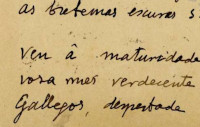 as brétemas escuras s
ven â maturidada
vosa mes verdecente
Gallegos, despertade